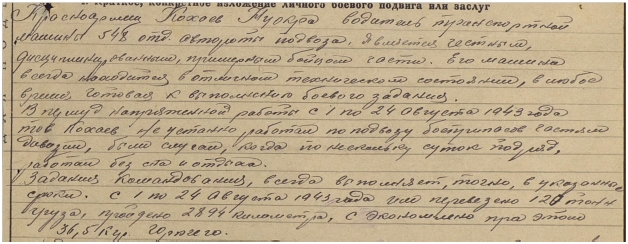 1. Краткое, конкретное изложение личного боевого подвига или заслуг
Красноармеец Кохаев водитель транспортной
машины 542 отд. автороты подвоза. Является честным,
дисциплинированным, примерным бойцом части. Его машина
всегда находится в отличном техническом состоянии, в любое
время готовая к выполнению боевого задания.
В период напряженной работы с 1 по 24 Августа 1943 года
тов Кохаев не устанно работал по подвозу боеприпасов частям
дивизии, были случаи, когда по несколько суток подряд,
работал без сна и отдыха.
Задания командования, всегда выполняет, точно, в указанные
сроки. С 1 по 24 Августа 1943 года им перевезено 120 тонн
груза, пройдено 2894 километра, с экономлено при этом
36,5 кгр. горючего.